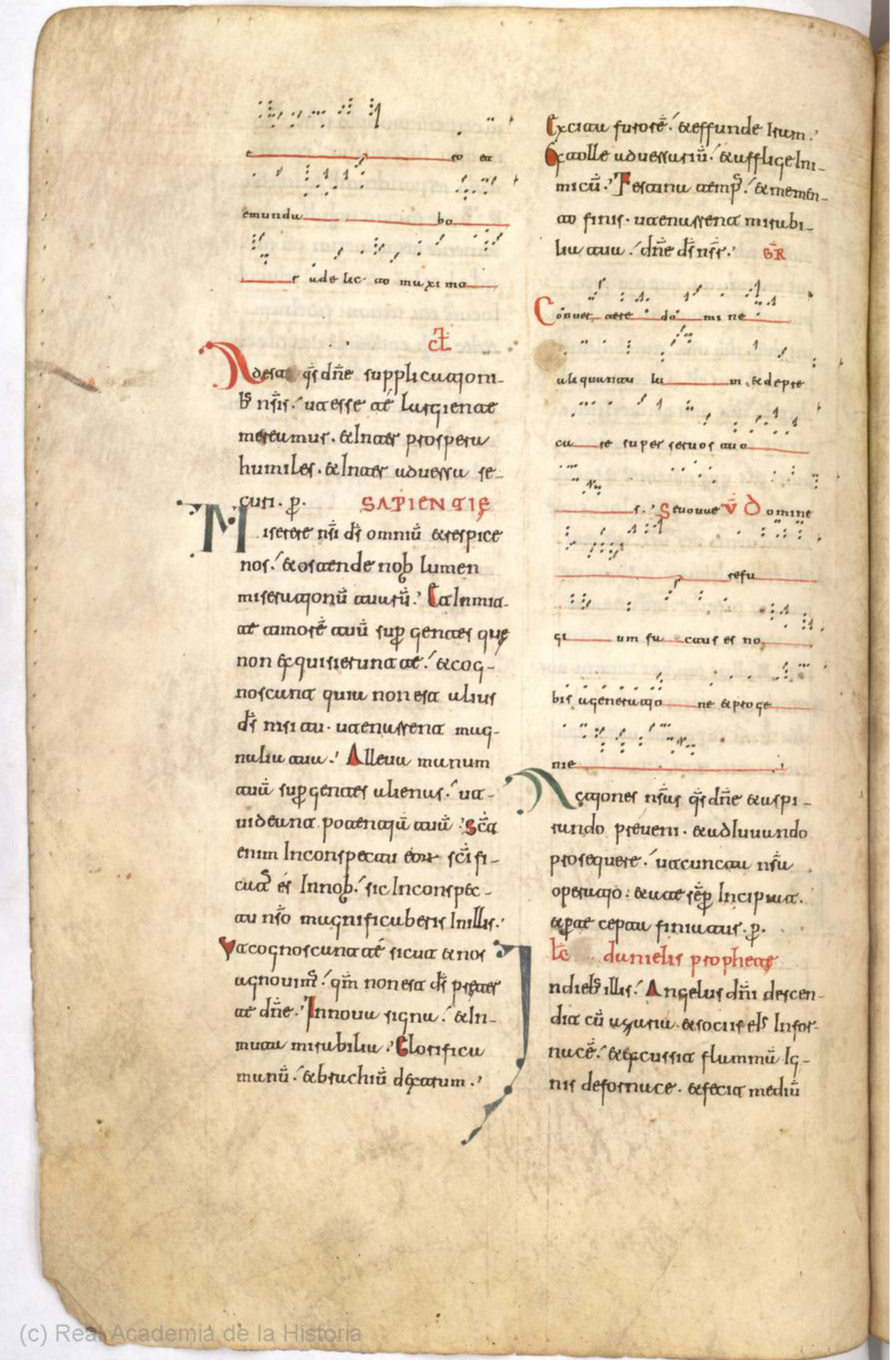 e to et
emunda bo
r adelic to maximo
Cł
Adesto q̄s dn̄e supplicationi-
b: nr̄is ut esse te largiente
mereamur. et Inter prospera
humiles. et Inter adversa se-
curi. p̄. SAPIENTIE
Miserere nr̄i ds̄ omniū et respice
nos. et ostende nob lumen
miserationū tuarū. Et Inmit-
te timorē tuū sup gentes quę
non exquisierunt te. et cog-
noscant quia non est alius
ds̄ nisi tu. ut enarrent mag-
nalia tua. Alleva manum
tuā sup gentes alienas. ut
videant potentiā tuā
enim Inconspectu scīfi-
catus es Innob. sic Inconspec-
tu nr̄o magnificaberis Inillis.
Ut cognoscant te sicut et nos
agnovim̄. qm̄ non est ds̄ pręter
te dn̄e. Innova signa. et In-
muta mirabilia. Glorifica
manū. et brachiū dextrum.
Excita furorē. et effunde Iram.
Extolle adversariū. et afflige Ini-
micū. Festina temp̄. et memen-
to finis. ut enarrent mirabi-
lia tua. dn̄e ds̄ nr̄. GR
Conver tere do mi ne
aliquantu lu m. et depre
ca re super servos tuo
s. Seuouue V̄ Domine
refu
gi um fa ctus es no
bis ageneratio ne et proge
nie
Actiones nr̄as q̄s dn̄e aspi-
rando preveni. et adiuvando
prosequere. ut cuncta nr̄a
operatio. et a te sēp Incipiat.
et p te cepta finiatur. p̄.
Łc danielis prophetę
In dieb: illis. Angelus dn̄i descen-
dit cū azaria. et sociis eīs Infor-
nacē. et excussit flammā Ig-
nis defornace. et fecit mediū